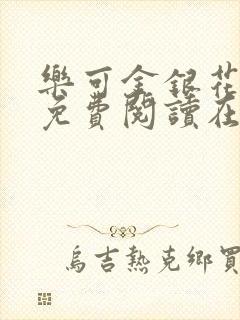 樂可金銀花
免費閱讀在
烏吉熱克鄉買